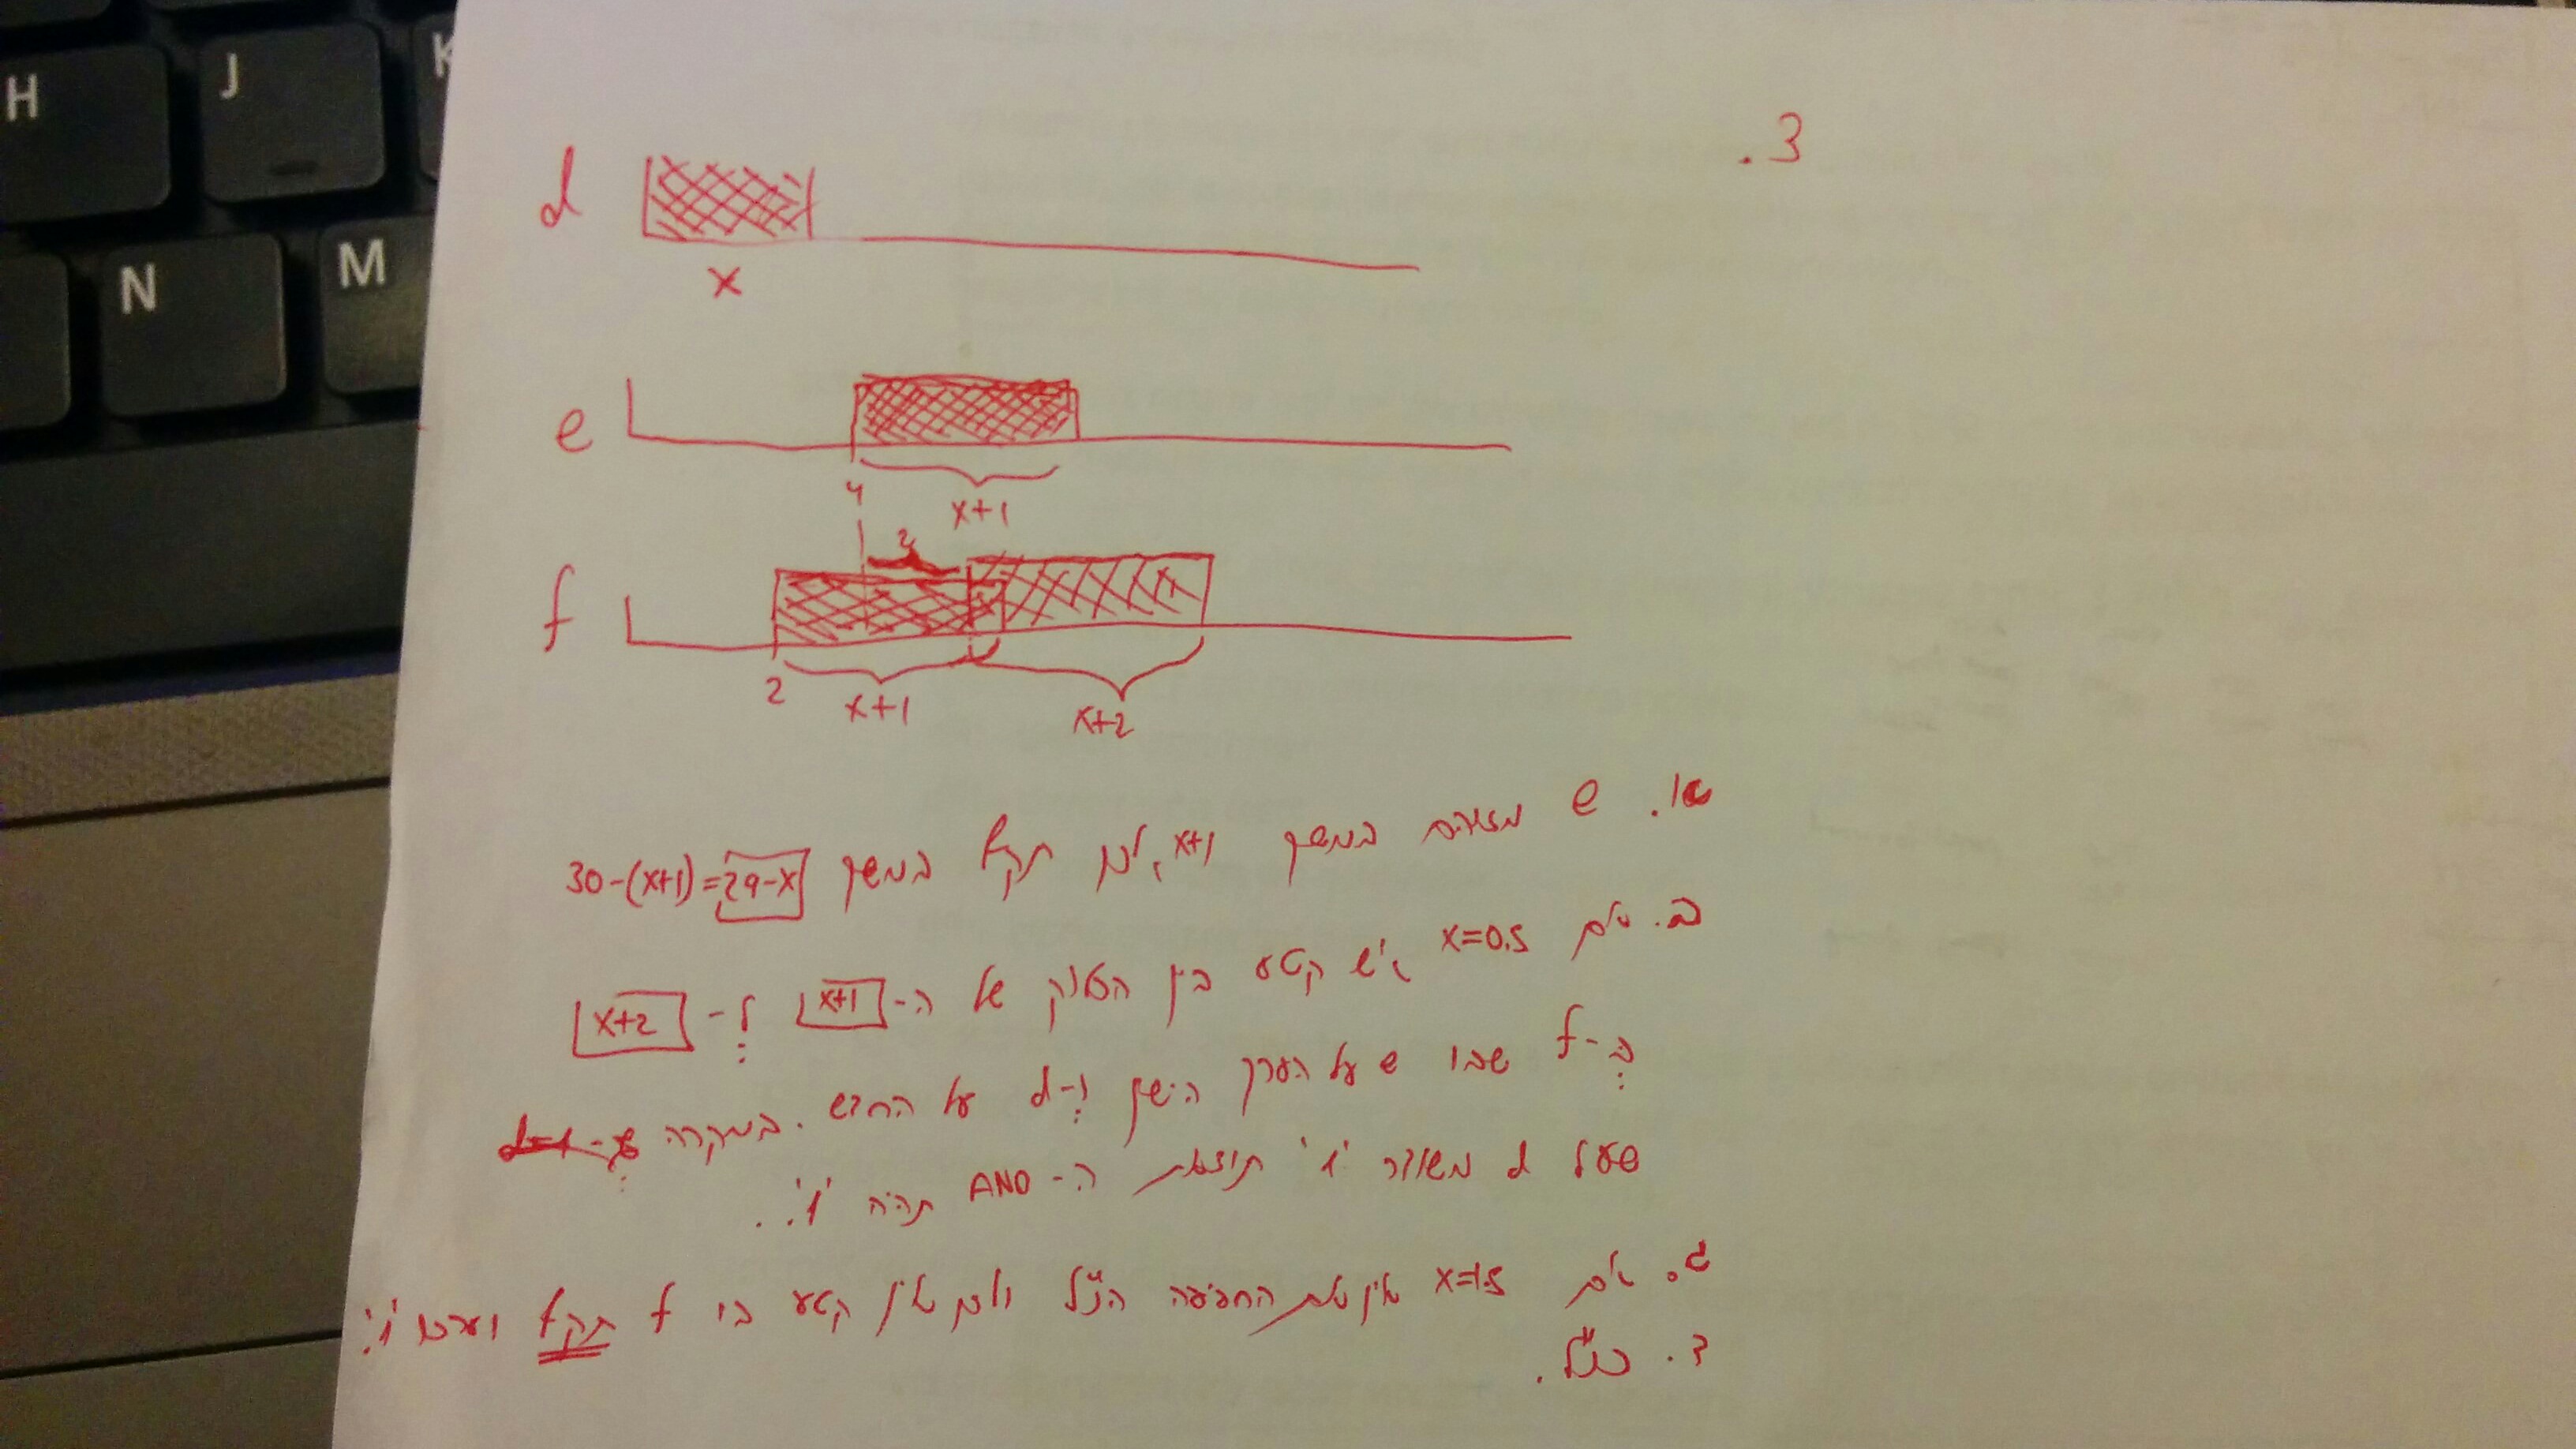 H
J
K
N
M
3.
d
x
e
4
x+1
2
f
2
x+1
x+2
א. e מזוהם במשך x+1, לכן תקף במשך 30-(x+1)=29-x
ב. אם x=0.5, יש קטע בין הסוף של ה- x+1 ל- x+2
ב-f שבו e על הערך הישן ו-d על החדש. במקרה
שעל d משודר '1' תוצאת ה-AND תהיה '1'.
ג. אם x=1.5 אין את החפיפה הנ"ל ולכן אין קטע בו f תקף וערכו '1'.
ד. כנ"ל.